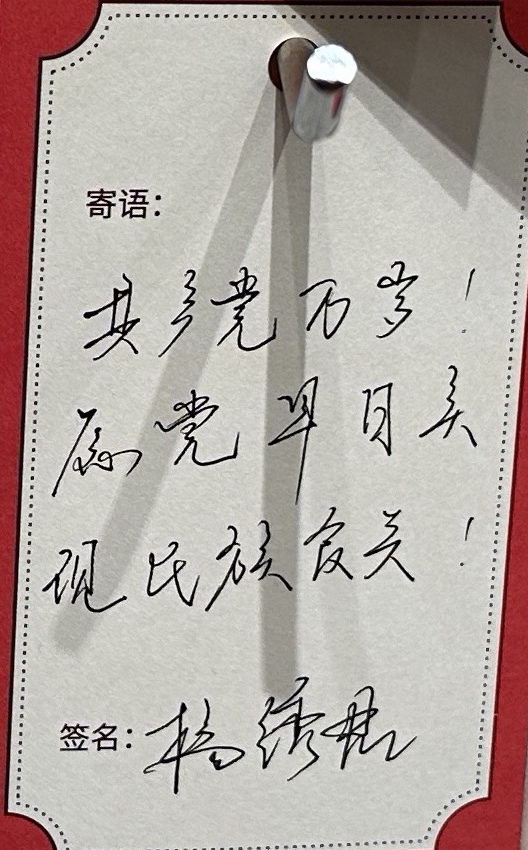 寄语：
共产党万岁！
愿党早日实
现民族复兴！
签名：杨绣